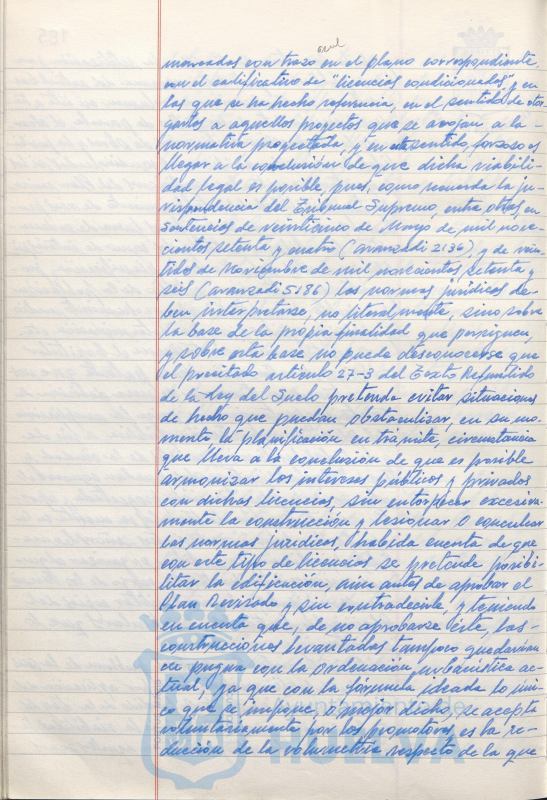 azul
marcados con trazo en el plano correspondiente
con el calificativo de "licencias condicionadas", y en
las que se ha hecho referencia, en el sentido de otor
garlas a aquellos proyectos que se acojan a la -
normativa proyectada, y en este sentido, forzoso es
llegar a la conclusión de que dicha viabili-
dad legal es posible, pues, como recuerda la ju-
rispondencia del Tribunal Supremo, entre otras, en
Sentencias de veinticinco de Mayo de mil nove-
cientos setenta y cuatro (aranzadi 2136), y de vein-
tidos de noviembre de mil novecientos setenta y
seis (aranzadi 5186) las normas jurídicas de-
ben interpretarse, no literalmente, sino sobre
la base de la propia finalidad que persiguen,
y sobre esta base no puede desconocerse que
el precitado artículo 27-3 del Texto Refundido
de la Ley del Suelo pretende evitar situaciones
de hecho que puedan obstaculizar, en su mo-
mento la planificación en trámite, circunstancia
que lleva a la conclusión de que es posible
armonizar los intereses públicos y privados
con dichas licencias, sin entorpecer excesiva-
mente la construcción y lesionar o conculcar
las normas jurídicas, habida cuenta de que
con este tipo de licencias se pretende posibi-
litar la edificación, aún antes de aprobar el
Plan Revisado y sin contradecirle, y teniendo
en cuenta que, de no aprobarse éste, las -
construcciones levantadas tampoco quedarían
en pugna con la ordenación urbanística ac-
tual, ya que con la fórmula ideada lo úni-
co que se impone, o mejor dicho, se acepta
voluntariamente por los promotores es la re-
ducción de la volumetría respecto de la que
HUELVA